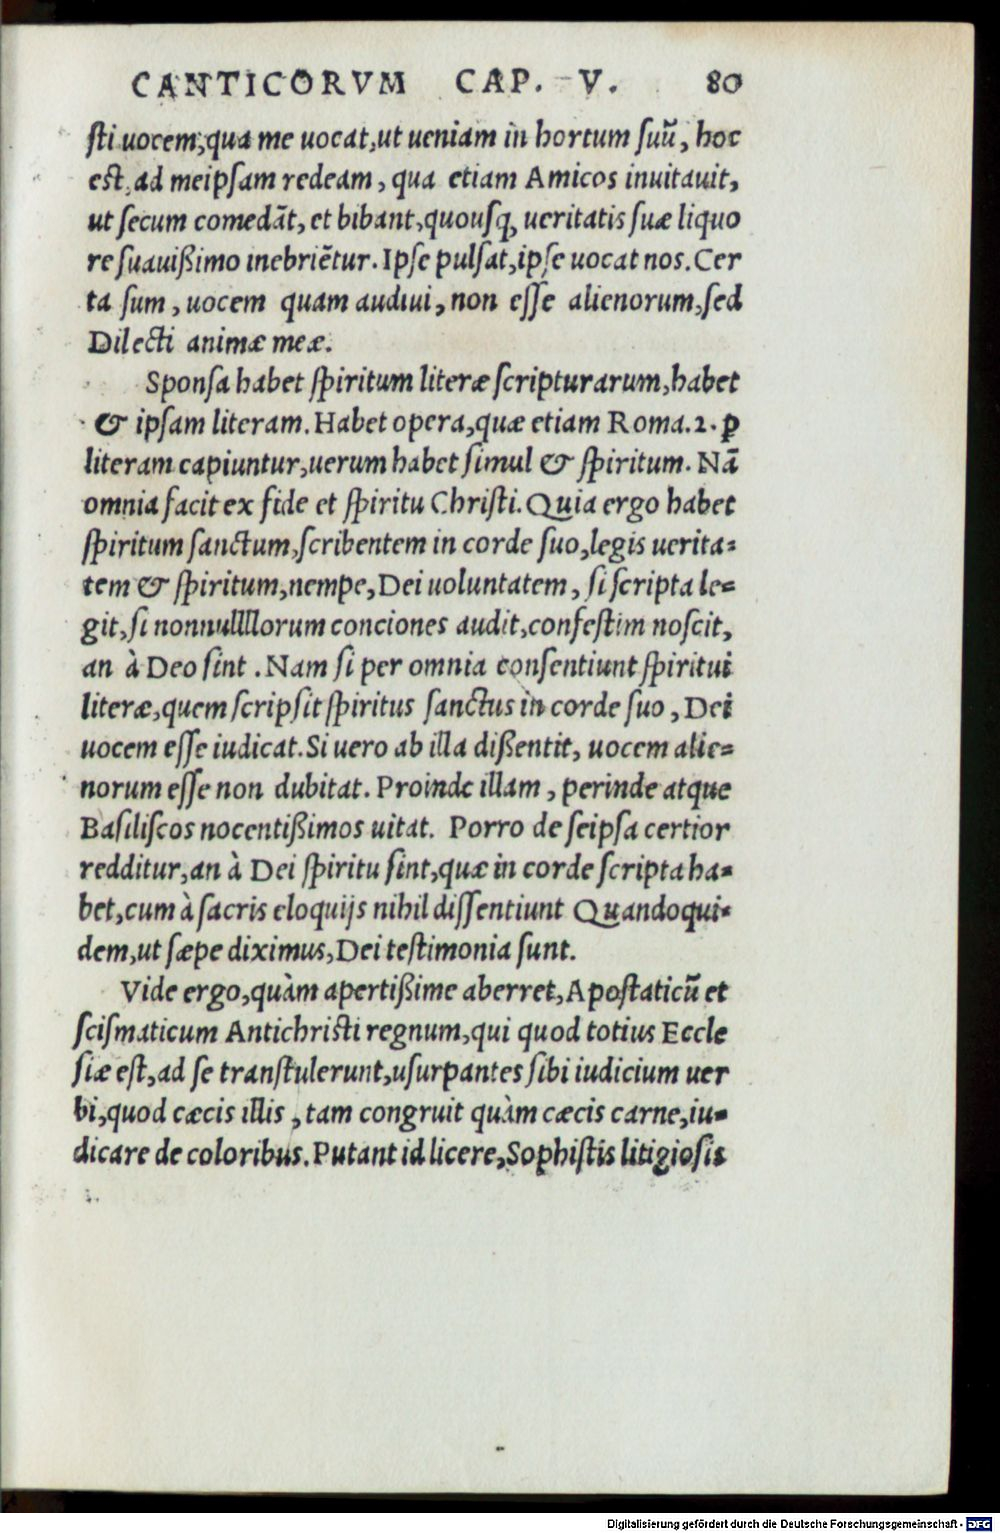 CANTICORVM CAP. V. 80
ſti uocem, qua me uocat, ut ueniam in hortum ſuũ, hoc
est, ad meipſam redeam, qua etiam Amicos inuitauit,
ut ſecum comedãt, et bibant, quouſq; ueritatis ſuæ liquo
re ſuauißimo inebriẽtur. Ipſe pulſat, ipſe uocat nos. Cer
ta ſum, uocem quam audiui, non eſſe alienorum, ſed
Dilecti animæ meæ.
Sponſa habet ſpiritum literæ ſcripturarum, habet
& ipſam literam. Habet opera, quæ etiam Roma. 2. ꝑ
literam capiuntur, uerum habet ſimul & ſpiritum. Nã
omnia facit ex fide et ſpiritu Chriſti. Quia ergo habet
ſpiritum ſanctum, ſcribentem in corde ſuo, legis uerita=
tem & ſpiritum, nempe, Dei uoluntatem, ſi ſcripta le=
git, ſi nonnullllorum conciones audit, confeſtim noſcit,
an à Deo ſint. Nam ſi per omnia conſentiunt ſpiritui
literæ, quem ſcripſit ſpiritus ſanctus in corde ſuo, Dei
uocem eſſe iudicat. Si uero ab illa dißentit, uocem alie=
norum eſſe non dubitat. Proinde illam, perinde atque
Baſiliſcos nocentißimos uitat. Porro de ſeipſa certior
redditur, an à Dei ſpiritu ſint, quæ in corde ſcripta ha=
bet, cum à ſacris eloquijs nihil diſſentiunt Quandoqui=
dem, ut ſæpe diximus, Dei teſtimonia ſunt.
Vide ergo, quàm apertißime aberret, Apoſtaticũ et
ſciſmaticum Antichriſti regnum, qui quod totius Eccle
ſiæ eſt, ad ſe tranſtulerunt, uſurpantes ſibi iudicium uer
bi, quod cæcis illis, tam congruit quàm cæcis carne, iu=
dicare de coloribus. Putant id licere, Sophiſtis litigioſis
Digitalisierung gefördert durch die Deutsche Forschungsgemeinschaft - DFG